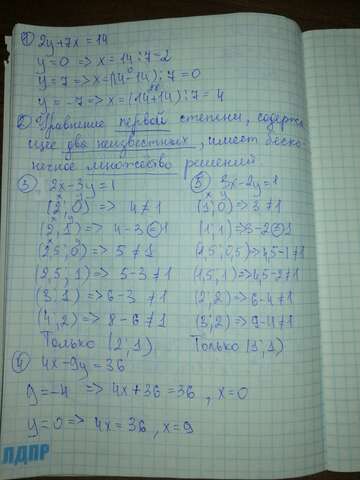 ① 2y+7x=14
y=0 => x=14:7=2
y=7 => x=(14-14):7=0
y=-7 => x=(14+14):7=4
② Уравнение первой степени, содержа
щее два неизвестных, имеет беско-
нечное множество решений.
③ 2x-3y=1
(2;0) => 4≠1
(2;1) => 4-3=1
(2,5;0) => 5≠1
(2,5;1) => 5-3≠1
(3;1) => 6-3≠1
(4;2) => 8-6≠1
Только (2;1).
⑤ 3x-2y=1
(1;0) => 3≠1
(1;1) => 3-2=1
(1,5;0,5) => 4,5-1≠1
(1,5;1) => 4,5-2≠1
(2;2) => 6-4≠1
(3;2) => 9-4≠1
Только (3;1)
④ 4x-9y=36
y=-4 => 4x+36=36, x=0
y=0 => 4x=36, x=9
ЛДПР